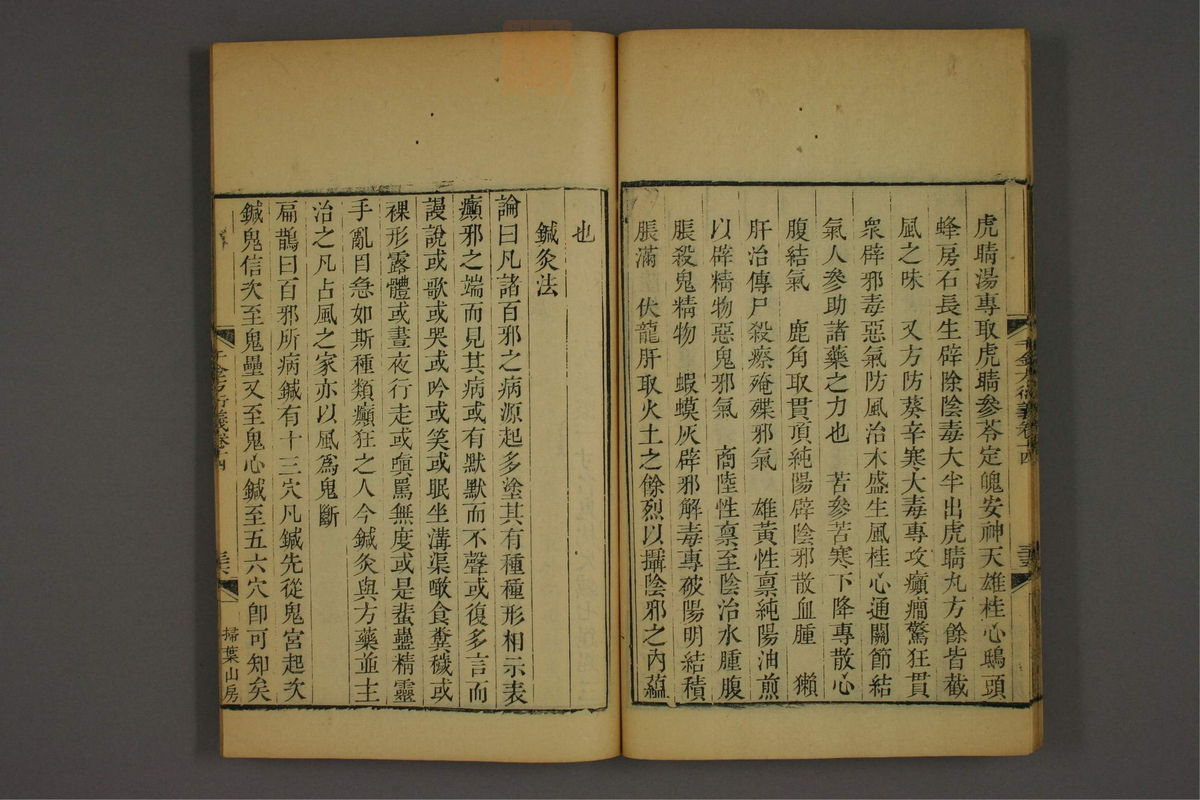 虎睛湯專取虎睛參苓定魄安神天雄桂心鴟頭
蜂房石長生辟除陰毒大半出虎睛丸方餘皆截
風之味　又方防葵辛寒大毒專攻癲癇驚狂貫
衆辟邪毒惡氣防風治木盛生風桂心通關節結
氣人參助諸藥之力也　苦參苦寒下降專散心
腹結氣　鹿角取貫頂純陽辟陰邪散血腫　獺
肝治傳尸殺瘵殗殜邪氣　雄黃性禀純陽油煎
以辟精物惡鬼邪氣　商陸性禀至陰治水腫腹
脹殺鬼精物　蝦蟆灰辟邪解毒專破陽明結積
脹滿　伏龍肝取火土之餘烈以攝陰邪之內蘊
千金方衍義卷十四
也
鍼灸法
論曰凡諸百邪之病源起多塗其有種種形相示表
癲邪之端而見其病或有默默而不聲或復多言而
謾說或歌或哭或吟或笑或眠坐溝渠噉食糞穢或
裸形露體或晝夜行走或嗔罵無度或是蜚蠱精靈
手亂目急如斯種類癲狂之人今鍼灸與方藥並主
治之凡占風之家亦以風爲鬼斷
扁鵲曰百邪所病鍼有十三穴凡鍼先從鬼宮起次
鍼鬼信次至鬼壘又至鬼心鍼至五六穴卽可知矣
千金方衍義卷十四
三六
掃葉山房